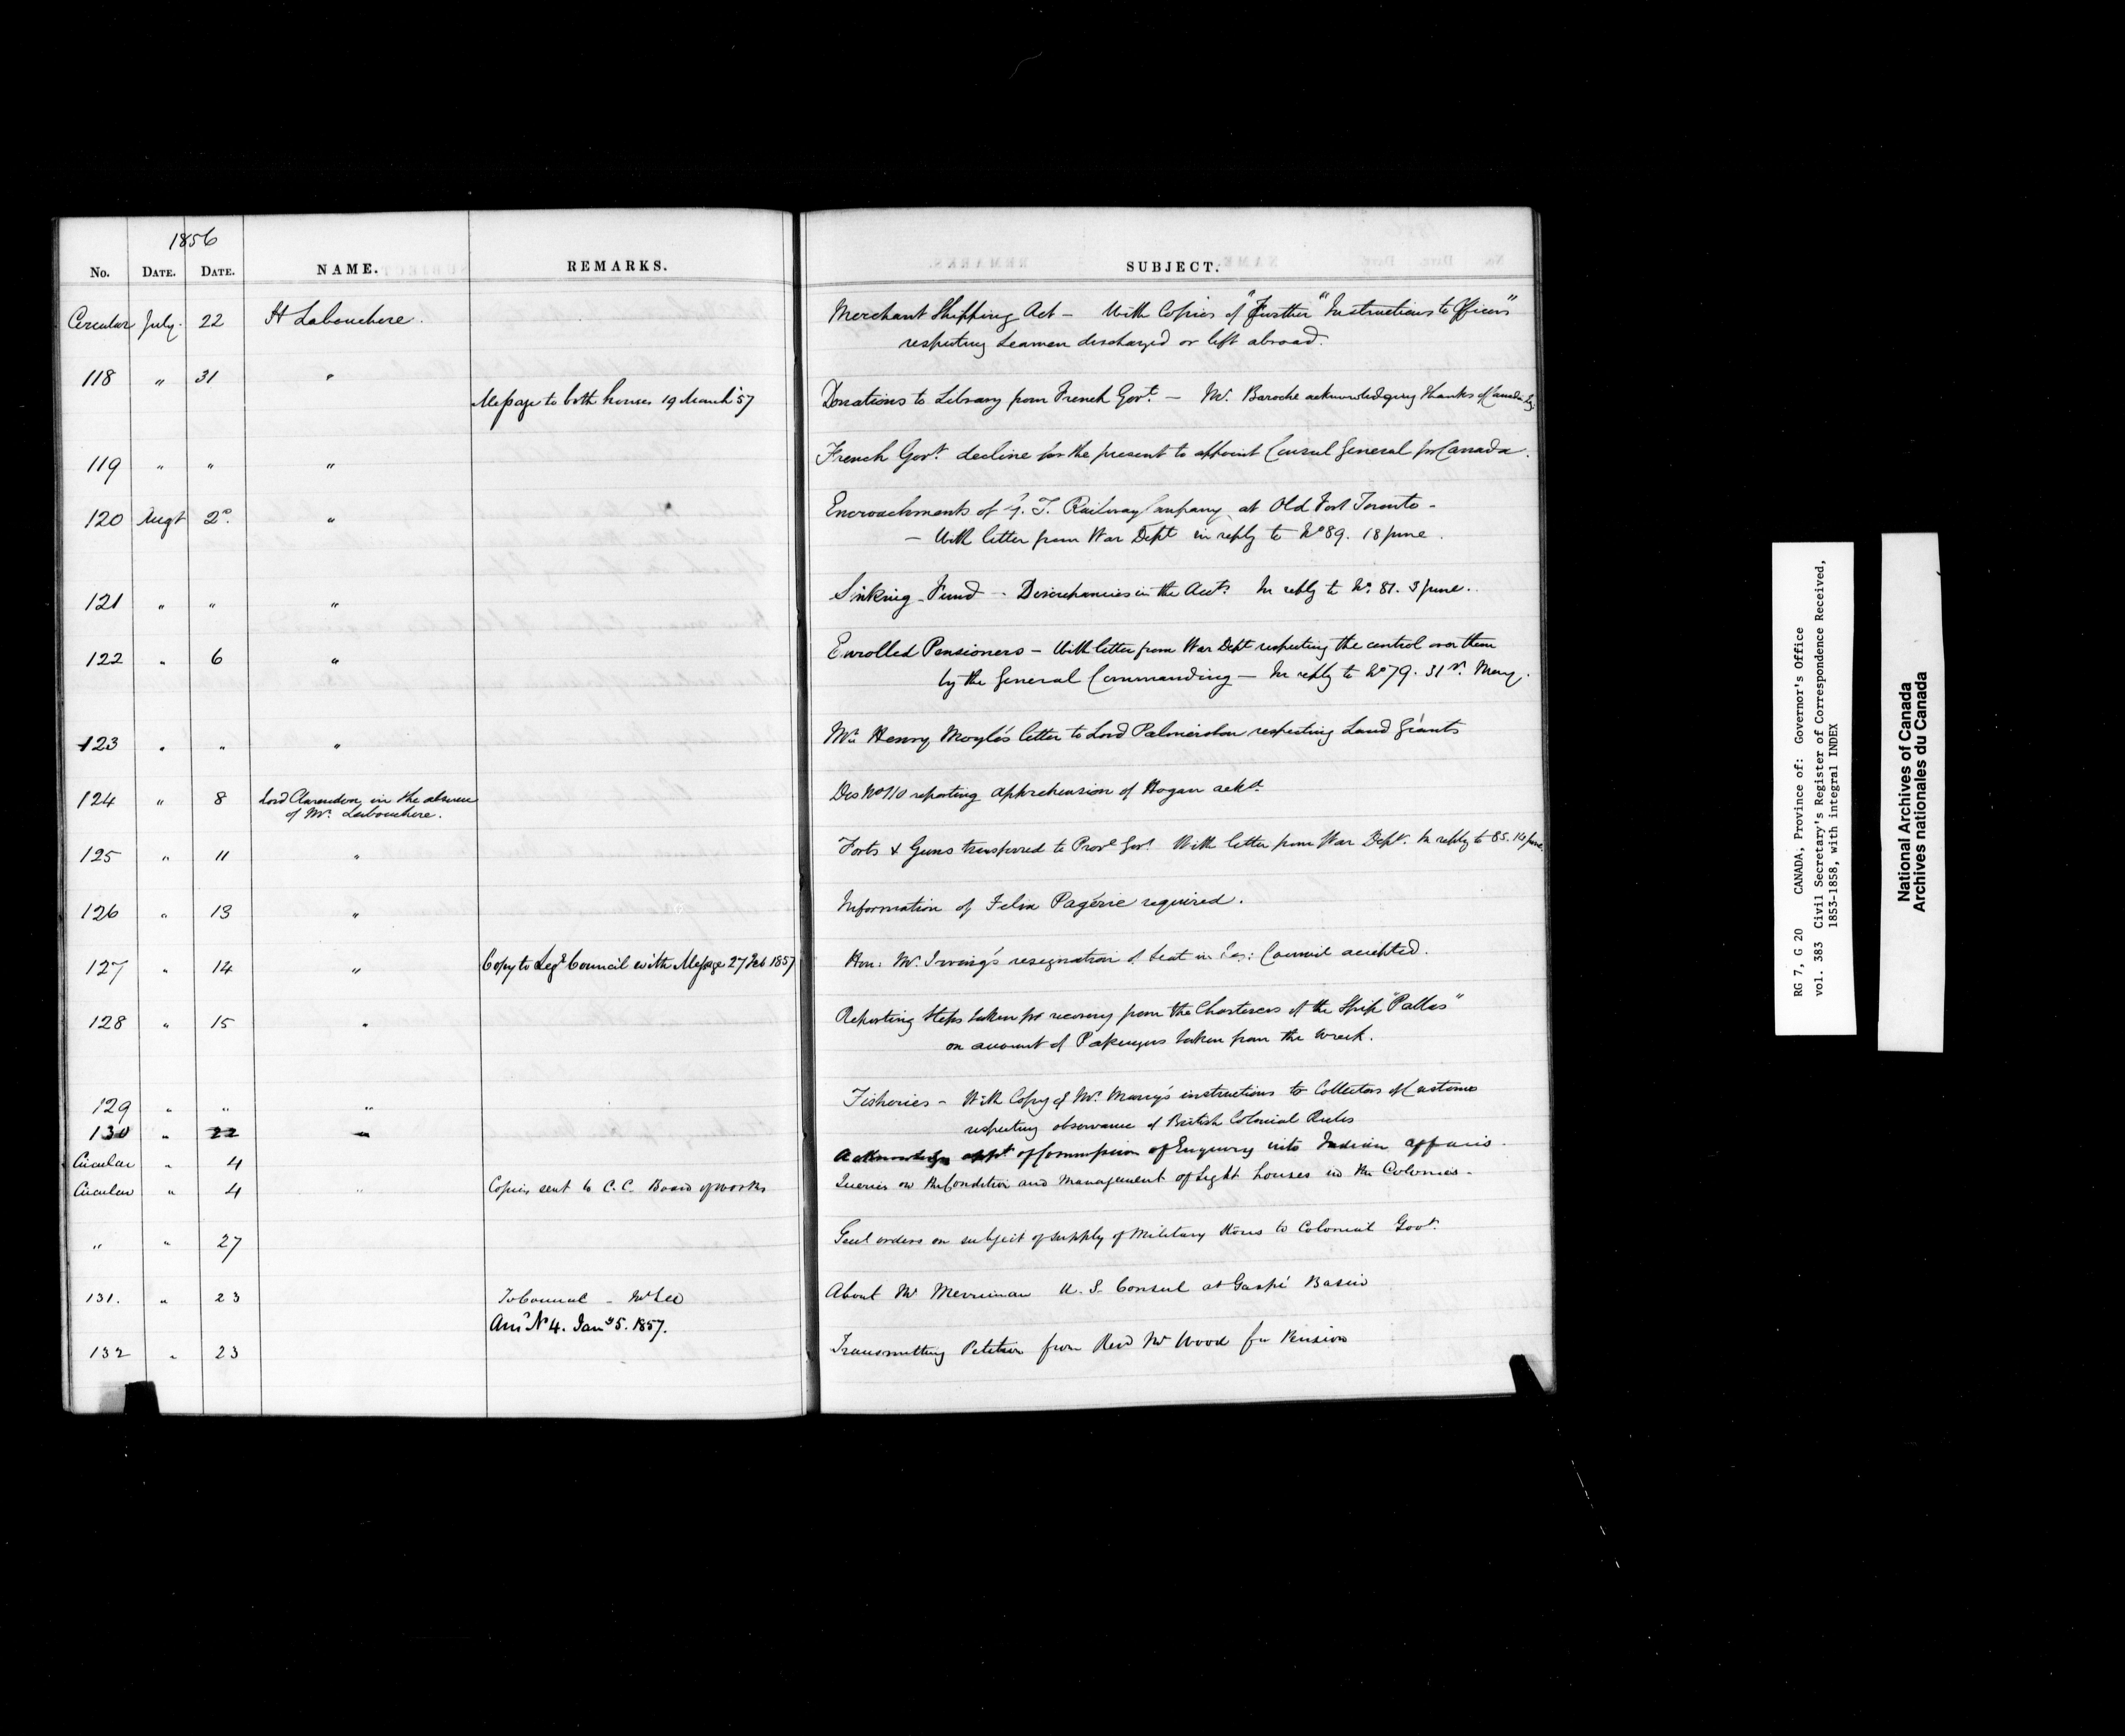 1856
No. DATE. DATE. NAME. REMARKS. SUBJECT.
Circular July. 22 H Labouchere. Merchant Shipping Act - With Copies of "Further" "Instructions to Officers"
respecting Seamen discharged or left abroad.
118 " 31 "
Message to both houses 19 March '57 Donations to Library from French Govt. - Mr. Baroche acknowledging thanks of Canadn
119 " " " French Govt. decline for the present to appoint Consul General for Canada.
120 Augt 2d. " Encroachments of G. T. Railway Company at Old Fort Toronto -
- With letter from War Dept in reply to No 89. 18 June.
121 " " " Sinking Fund - Discrepancies in the Accts. In reply to No. 81. 3 June.
122 " 6 " Enrolled Pensioners - With letter from War Dept respecting the control over them
by the General Commanding - In reply to No 79. 31st. May.
123 " " " Mr. Henry Moyle's letter to Lord Palmerston respecting Land Grants
124 " 8 Lord Clarendon, in the absence Des No 110 reporting apprehension of Hogan ackd.
of Mr. Labouchere.
125 " 11 " Forts & Guns transferred to Provl Govt. With letter from War Dept. In reply to 85. 14 June.
126 " 13 " Information of Felix Pagerie required.
127 " 14 " Copy to Legl Council with Message 27 Feb 1857 Hon. Mr. Irving's resignation of Seat in Leg: Council accepted.
128 " 15 " Reporting Steps taken for recovery from the Charterers of the Ship "Pallas"
on account of Passengers taken from the wreck.
129 " " " Fisheries - With Copy of Mr. Marcy's instructions to Collectors of Customs
respecting observance of British Colonial Rules
130 " 22 "
Circular " 4 Acknowledges appt of Commission of Enquiry into Indian affairs.
Circular " 4 " Copies sent to C. C. Board of works Queries on the Condition and Management of Light houses in the Colonies -
" " 27 Genl orders on subject of supply of Military Stores to Colonial Govt.
131. " 23 To Council - About Mr Merriman U. S. Consul at Gaspé Basin
Ansd No 4. Jany 5. 1857.
132 " 23 Transmitting Petition from Revd Mr Wood for Pension
RG 7, G 20 CANADA, Province of: Governor's Office
vol. 383 Civil Secretary's Register of Correspondence Received,
1853-1858, with integral INDEX
National Archives of Canada
Archives nationales du Canada